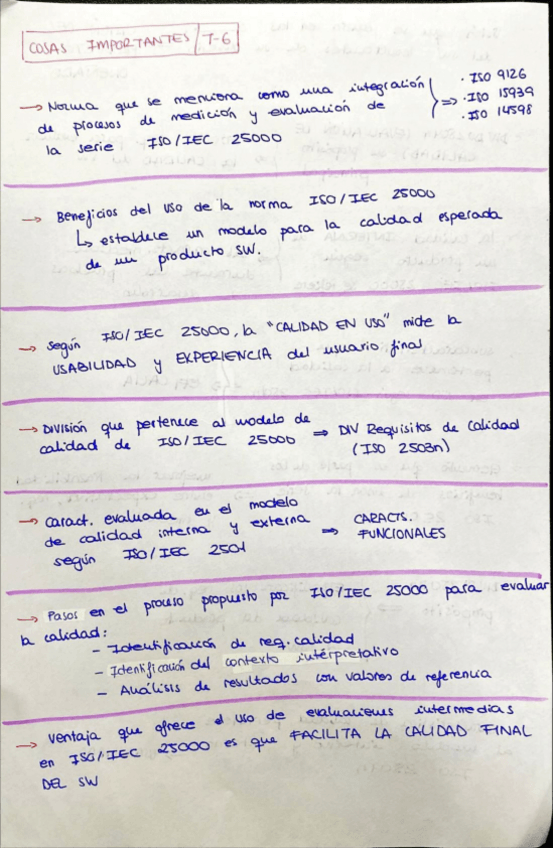 COSAS IMPORTANTES / T-6
→ Norma que se menciona como una integración
de procesos de medición y evaluación de
la serie ISO/IEC 25000
⇒ · ISO 9126
· ISO 15939
· ISO 14598
→ Beneficios del uso de la norma ISO/IEC 25000
↳ establece un modelo para la calidad esperada
de un producto SW.
→ según ISO/IEC 25000, la "CALIDAD EN USO" mide la
USABILIDAD y EXPERIENCIA del usuario final
→ División que pertenece al modelo de
calidad de ISO/IEC 25000 ⇒ DIV Requisitos de calidad
(ISO 2503n)
→ caract. evaluada en el modelo
de calidad interna y externa
según ISO/IEC 2501
⇒ CARACTS.
FUNCIONALES
→ Pasos en el proceso propuesto por ISO/IEC 25000 para evaluar
la calidad:
- Identificación de req. calidad
- Identificación del contexto interpretativo
- Análisis de resultados con valores de referencia
→ Ventaja que ofrece el uso de evaluaciones intermedias
en ISO/IEC 25000 es que FACILITA LA CALIDAD FINAL
DEL SW